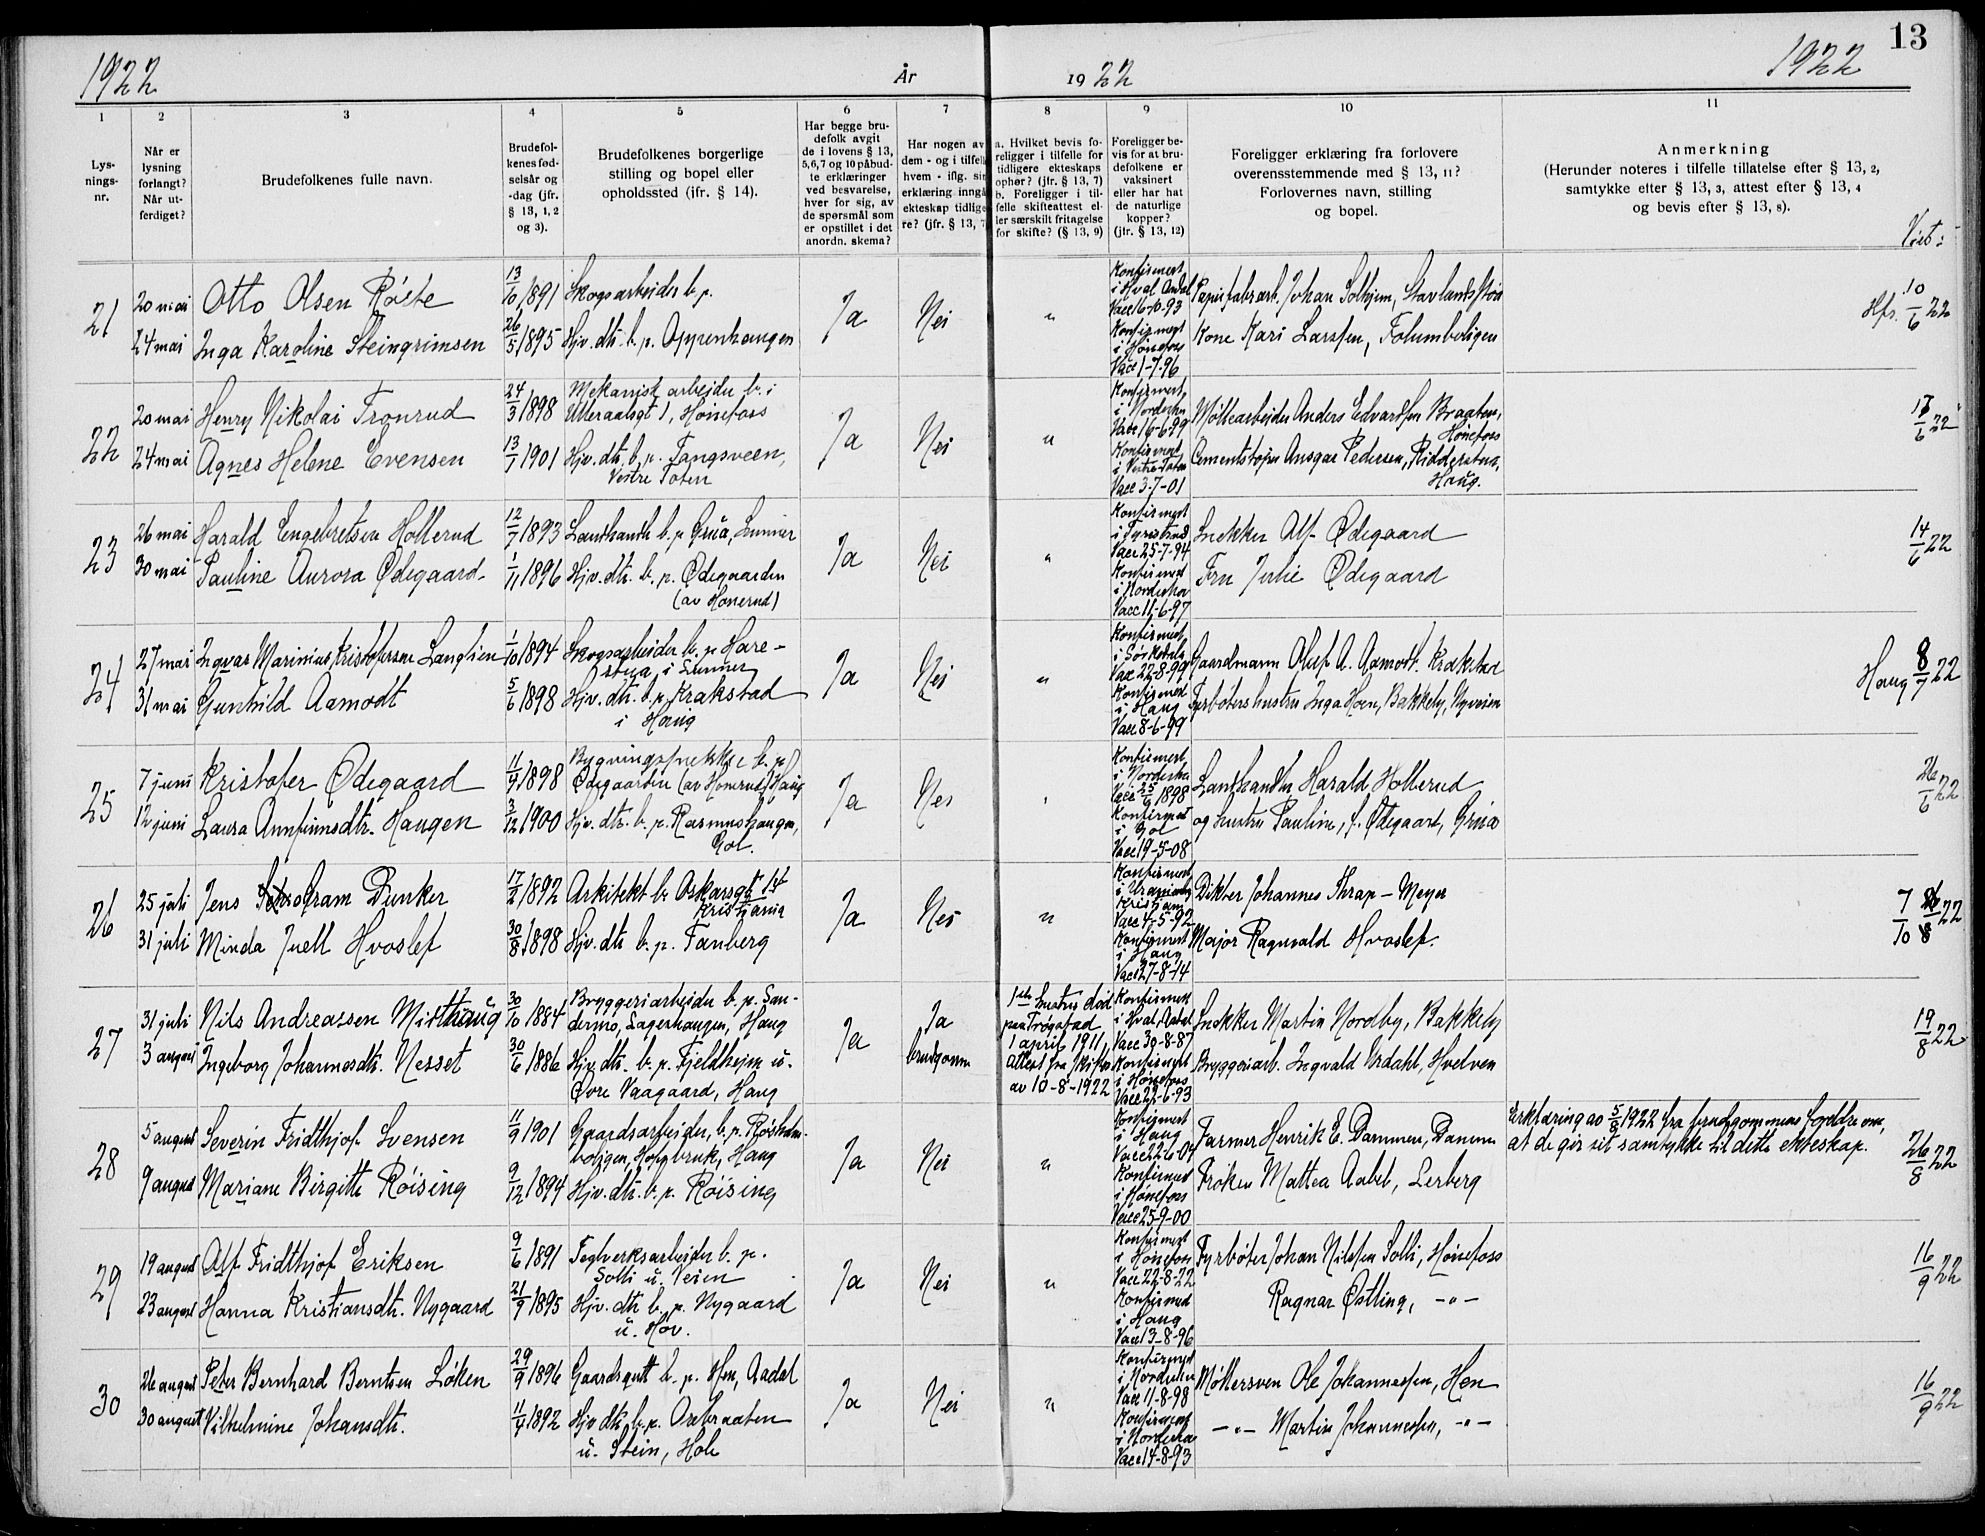 13
1922 År 1922 1922
1 2 3 4 5 6 7 8 9 10 11
Lys-
nings-
nr.
Når er
lysning
forlangt?
Når ut-
ferdiget?
Brudefolkenes fulle navn.
Brudefol-
kenes fød-
selsår og
-dag (jfr.
§ 13, 1, 2
og 3).
Brudefolkenes borgerlige
stilling og bopel eller
opholdssted (jfr. § 14).
Har begge bru-
defolk avgit
de i lovens § 13,
5,6,7 og 10 påbud-
te erklæringer
ved besvarelse,
hver for sig, av
de spørsmål som
er opstillet i det
anordn. skema?
Har nogen av
dem - og i tilfelle
hvem - iflg. sin
erklæring inngå
ekteskap tidlige
re? (jfr. § 13, 7
a. Hvilket bevis fo-
religger i tilfelle for
tidligere ekteskaps
ophør? (jfr. § 13, 7)
b. Foreligger i til-
felle skifteattest el-
ler særskilt fritagelse
for skifte? (§ 13, 9)
Foreligger be-
vis for at bru-
defolkene er
vaksinert
eller har hat
de naturlige
kopper?
(jfr. § 13, 12)
Foreligger erklæring fra forlovere
overensstemmende med § 13, 11?
Forlovernes navn, stilling
og bopel.
Anmerkning
(Herunder noteres i tilfelle tillatelse efter § 13, 2,
samtykke efter § 13, 3, attest efter § 13, 4
og bevis efter § 13, 8).
Viet:
21
20 mai
24 mai
Otto Olsen Røste
Inga Karoline Steingrimsen
13/10 1891
26/5 1895
Skogsarbeider b. p.
Hjv. dtr. b. p. Oppenhaugen
Ja
Nei
"
Konfirmert
i Hval Aadal
Vacc 16-10-93
Konfirmert
i Hønefoss
Vacc 1-7-96
Papirfabrarb. Johan Solhjem,
Kone Kari Larssen, Follumboligen
Hfs. 10/6 22
22
20 mai
24 mai
Henry Nikolai Tronrud
Agnes Helene Evensen
24/3 1898
13/7 1901
Mekanisk arbeider b. i
Ulleraalsgt 1, Hønefoss
Hjv. dtr. b. p. Fangsveen,
Vestre Toten
Ja
Nei
"
Konfirmert
i Norderhov
Vacc 16-6-99
Konfirmert
i Vestre Toten
Vacc 3-7-01
Møllearbeider Anders Edvardsen Braaten,
Hønefoss
Cementstøper Ansgar Pedersen,
Haug.
17/6 22
23
26 mai
30 mai
Harald Engebretsen Hollerud
Pauline Aurora Ødegaard
12/7 1893
1/11 1896
Landhandl. b. p. Grua, Lunner
Hjv. dtr. b. p. Ødegaarden
(av Hønerud)
Ja
Nei
"
Konfirmert
i Tyristrand
Vacc 25-7-94
Konfirmert
i Norderhov
Vacc 11-6-97
Snekker Alf Ødegaard
Fru Julie Ødegaard
14/6 22
24
27 mai
31 mai
Ingvar Marinius Kristofersen Langlien
Gunhild Aamodt
1/10 1894
5/6 1898
Skogsarbeider b. p. Hare-
stua i Lunner
Hjv. dtr. b. p. Krakstad
i Haug
Ja
Nei
"
Konfirmert
i Sørkedalen
Vacc 22-8-99
Konfirmert
i Haug
Vacc 8-6-99
Gaardmann Oluf A. Aamodt. Krakstad
Fyrbøters hustru Inga Hoen, Bakkely, Nyveien
Haug 8/7 22
25
7 juni
12 juni
Kristofer Ødegaard
Laura Annfinnsdtr. Haugen
11/4 1898
3/12 1900
Bygningssnekker b. p.
Ødegaarden (av Hønerud) Haug
Hjv. dtr. b. p. Rasmushaugen,
Gol.
Ja
Nei
"
Konfirmert
i Norderhov
Vacc 25/6 1898
Konfirmert
i Gol
Vacc 19-5-08
Landhandler Harald Hollerud
og hustru Pauline, f. Ødegaard, Grua
26/6 22
26
25 juli
31 juli
Jens Gram Dunker
Minda Juell Hvoslef
17/2 1892
30/8 1898
Arkitekt b. Oskarsgt 14
Kristiania
Hjv. dtr b. p. Tanberg
Ja
Nei
"
Konfirmert
i Uranienborg
Kristiania
Vacc 4-5-92
Konfirmert
i Haug
Vacc 27-8-14
Dikter Johannes Thrap-Meyer
Major Ragnvald Hvoslef.
7/10 22
27
31 juli
3 august
Nils Andreassen Midthaug
Ingeborg Johannesdtr. Nesset
30/10 1884
30/6 1886
Bryggeriarbeider b. p. San-
dermo, Sagerhaugen, Haug
Hjv. dtr. b. p. Fjeldheim u.
Øvre Vaagaard, Haug
Ja
Ja
brudgommen
1ste hustru død
paa Trøgstad
1 april 1911,
attest fra skiften
av 10-8-1922
Konfirmert
i Hval, Aadal
Vacc 30-8-87
Konfirmert
i Hønefoss
Vacc 22-6-93
Snekker Martin Nordby, Bakkely
Bryggeriarb. Ingvald Urdahl, Hvelven
19/8 22
28
5 august
9 august
Severin Fridthjof Svensen
Mariane Birgitte Røising
11/9 1901
9/12 1894
Gaardsarbeider, b. p. Røisholm-
boligen, Hofsbruk, Haug
Hjv. dtr. b. p. Røising
Ja
Nei
"
Konfirmert
i Haug
Vacc 22-6-04
Konfirmert
i Hønefoss
Vacc 25-9-00
Farmer Henrik E. Dammen, Dammen
Frøken Mattea Aabel, Lerberg
Erklæring av 5/8 1922 fra brudgommens forældre om,
at de gir sit samtykke til dette ekteskap.
26/8 22
29
19 august
23 august
Alf Fridthjof Eriksen
Hanna Kristiansdtr. Nygaard
9/6 1891
21/9 1895
Teglverksarbeider b. p.
Solli u. Veien
Hjv. dtr b. p. Nygaard
u. Hov.
Ja
Nei
"
Konfirmert
i Hønefoss
Vacc 22-8-22
Konfirmert
i Haug
Vacc 13-8-96
Fyrbøter Johan Nilssen Solli, Hønefoss
Ragnar Østling, -"-
16/9 22
30
26 august
30 august
Peter Bernhard Berntsen Løken
Vilhelmine Johansdtr.
29/9 1896
11/4 1892
Gaardsgutt b. p. Hen, Aadal
Hjv dtr. b. p. Aabraaten
u. Stein, Hole
Ja
Nei
"
Konfirmert
i Norderhov
Vacc 11-8-98
Konfirmert
i Norderhov
Vacc 14-8-93
Møllersven Ole Johannessen, Hen
-"- Martin Johannessen, -"-
16/9 22